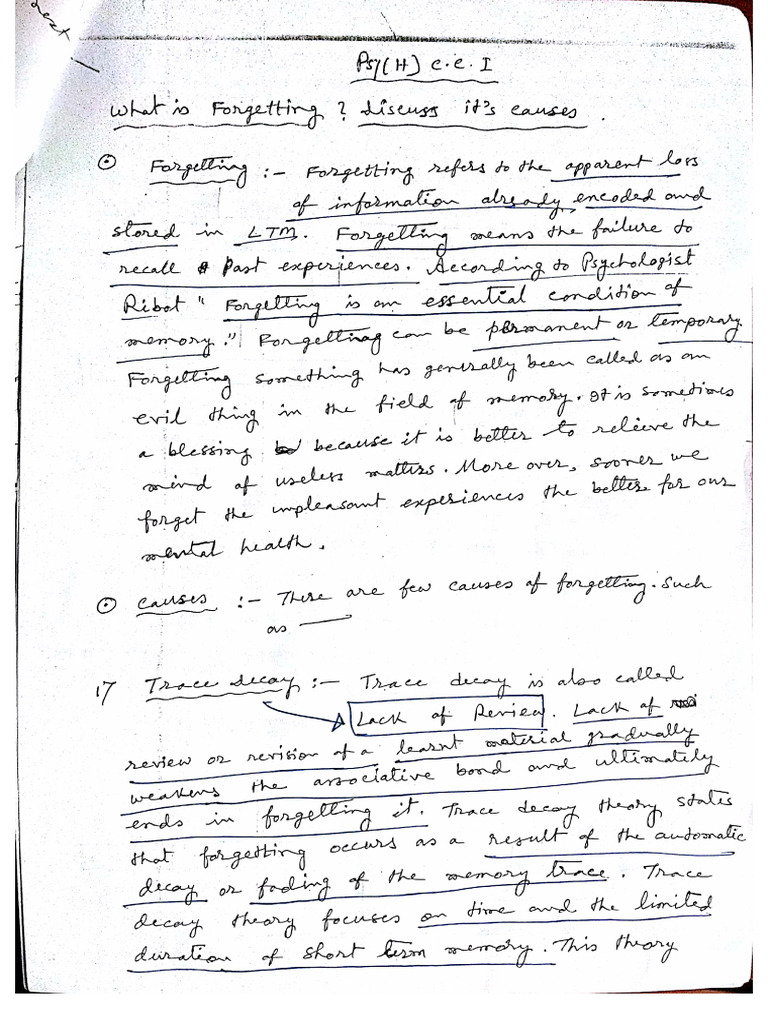 next
Psy(H) C.C. I
What is Forgetting? Discuss it's causes.
⊙ Forgetting :- Forgetting refers to the apparent loss
of information already encoded and
stored in LTM. Forgetting means the failure to
recall past experiences. According to Psychologist
Ribot "Forgetting is an essential condition of
memory." Forgetting can be permanent or temporary.
Forgetting something has generally been called as an
evil thing in the field of memory. It is sometimes
a blessing because it is better to relieve the
mind of useless matters. More over, sooner we
forget the unpleasant experiences the better for our
mental health.
⊙ Causes :- There are few causes of forgetting. Such
as —
1) Trace Decay :- Trace decay is also called
Lack of Review. Lack of
review or revision of a learnt material gradually
weakens the associative bond and ultimately
ends in forgetting it. Trace decay theory states
that forgetting occurs as a result of the automatic
decay or fading of the memory trace. Trace
decay theory focuses on time and the limited
duration of short term memory. This theory